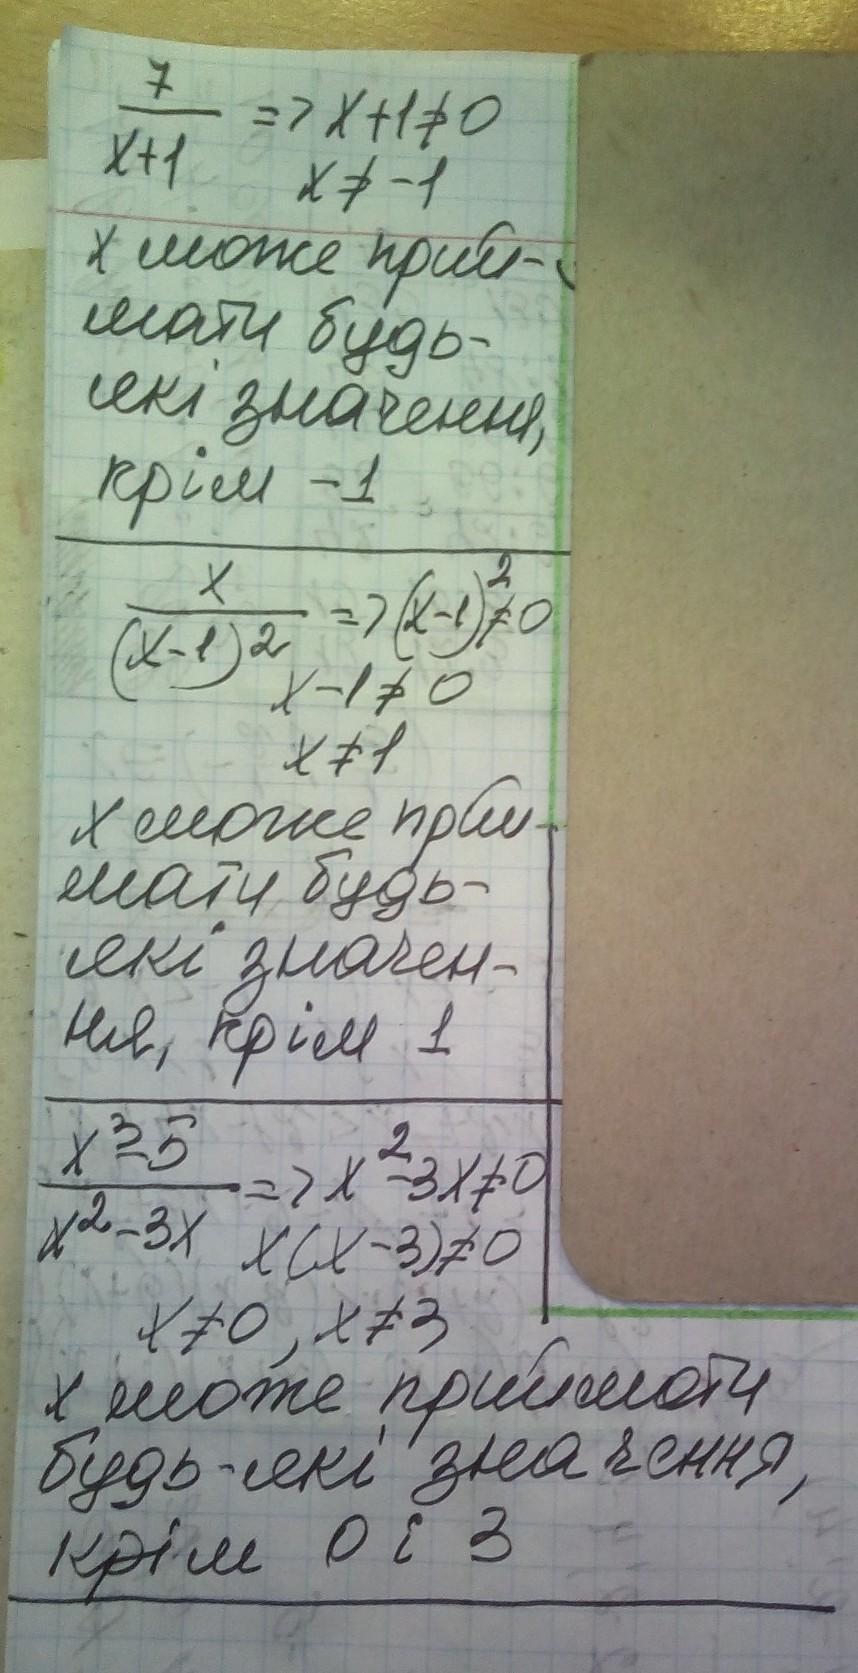 7
x+1 => x+1≠0
x≠-1
x може прий-
мати будь-
які значення,
крім -1
x
(x-1)2 => (x-1)2≠0
x-1≠0
x≠1
x може прий-
мати будь-
які значен-
ня, крім 1
x2-5
x2-3x => x2-3x≠0
x(x-3)≠0
x≠0, x≠3
x може приймати
будь-які значення,
крім 0 і 3